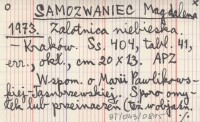 SAMOZWANIEC Magdalena
1973. Zalotnica niebieska.
- Kraków. Ss. 404, tabl. 41,
err., okł., cm 20 x 13. APZ
Wspom. o Marii Pawlikows-
kiej-Jasnorzewskiej. Sporo omy-
łek lub przeinaczeń, ten objaśn.